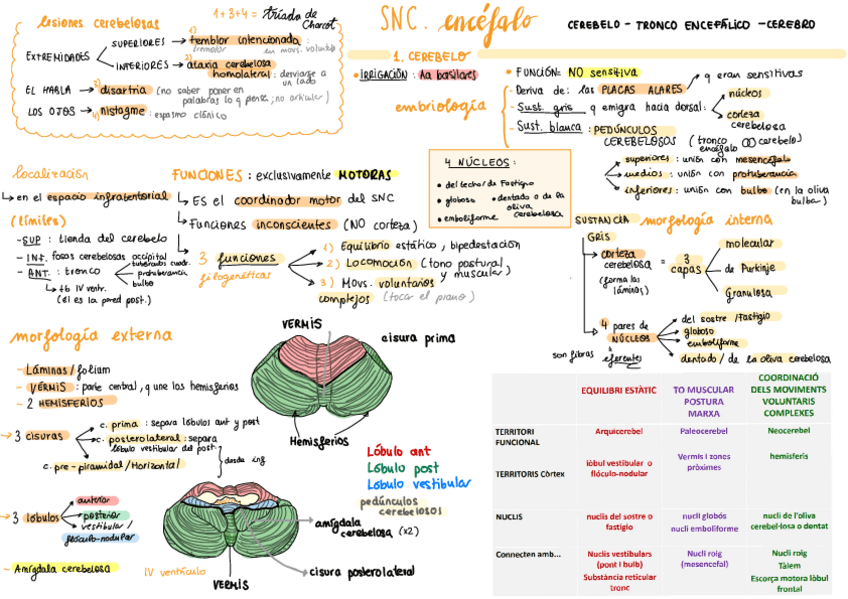 lesiones cerebelosas
1+3+4 = tríada de Charcot
EXTREMIDADES
SUPERIORES → 1) temblor intencionado:
en movs. volunto
INFERIORES → 2) ataxia cerebelosa
homolateral: desviarse a
un lado
EL HABLA → 3) disartria (no saber poner en
palabras lo q piensa; no articular)
LOS OJOS → 4) nistagme: espasmo clónico
SNC. encéfalo
CEREBELO - TRONCO ENCEFÁLICO - CEREBRO
1. CEREBELO
• IRRIGACIÓN: Aa basilares
embriología
• FUNCIÓN: NO sensitiva
- Deriva de: las PLACAS ALARES > q eran sensitivas
- Sust. gris q emigra hacia dorsal:
núcleos
corteza
cerebelosa
- Sust. blanca: PEDÚNCULOS
CEREBELOSOS (tronco
encéfalo ∞ cerebelo)
superiores: unión con mesencéfalo
medios: unión con protuberancia
inferiores: unión con bulbo (en la oliva
bulbar)
4 NÚCLEOS:
• del techo/de Fastigio
• globoso • dentado o de la
oliva
• emboliforme cerebelosa
localización
↳ en el espacio infratentorial
(límites)
- SUP: tienda del cerebelo
- INF: fosas cerebelosas occipital
- ANT: tronco
tubérculos cuadr.
protuberancia
bulbo
↳ tb IV ventr.
(él es la pared post.)
FUNCIONES: exclusivamente MOTORAS
↳ Es el coordinador motor del SNC
↳ Funciones inconscientes (NO corteza)
↳ 3 funciones
filogenéticas
1) Equilibrio estático, bipedestación
2) Locomoción (tono postural
y muscular)
3) Movs. voluntarios
complejos (tocar el piano)
SUSTANCIA
GRIS
morfología interna
corteza
cerebelosa
(forma las
láminas)
= 3
capas
molecular
de Purkinje
Granulosa
4 pares de
NÚCLEOS
son fibras eferentes
del sostre/Fastigio
globoso
emboliforme
dentado/de la oliva cerebelosa
morfología externa
- Láminas/folium
- VERMIS: parte central, q une los hemisferios
- 2 HEMISFERIOS
→ 3 cisuras
c. prima: separa lóbulos ant y post
c. posterolateral: separa
lóbulo vestibular del post.
c. pre-piramidal/Horizontal
desde inf
→ 3 lóbulos
anterior
posterior
vestibular/
flóculo-nodular
- Amígdala cerebelosa
VERMIS
cisura prima
Hemisferios
Lóbulo ant
Lóbulo post
Lóbulo vestibular
pedúnculos
cerebelosos
amígdala
cerebelosa (x2)
cisura posterolateral
IV ventrículo
VERMIS
EQUILIBRI ESTÀTIC
TO MUSCULAR
POSTURA
MARXA
COORDINACIÓ
DELS MOVIMENTS
VOLUNTARIS
COMPLEXES
TERRITORI
FUNCIONAL
Arquicerebel
Paleocerebel
Neocerebel
TERRITORIS Còrtex
lòbul vestibular o
flóculo-nodular
Vermis i zones
pròximes
hemisferis
NUCLIS
nuclis del sostre o
fastigio
nucli globós
nucli emboliforme
nucli de l'oliva
cerebel·losa o dentat
Connecten amb...
Nuclis vestibulars
(pont i bulb)
Substància reticular
tronc
Nucli roig
(mesencefal)
Nucli roig
Tàlem
Escorça motora lòbul
frontal